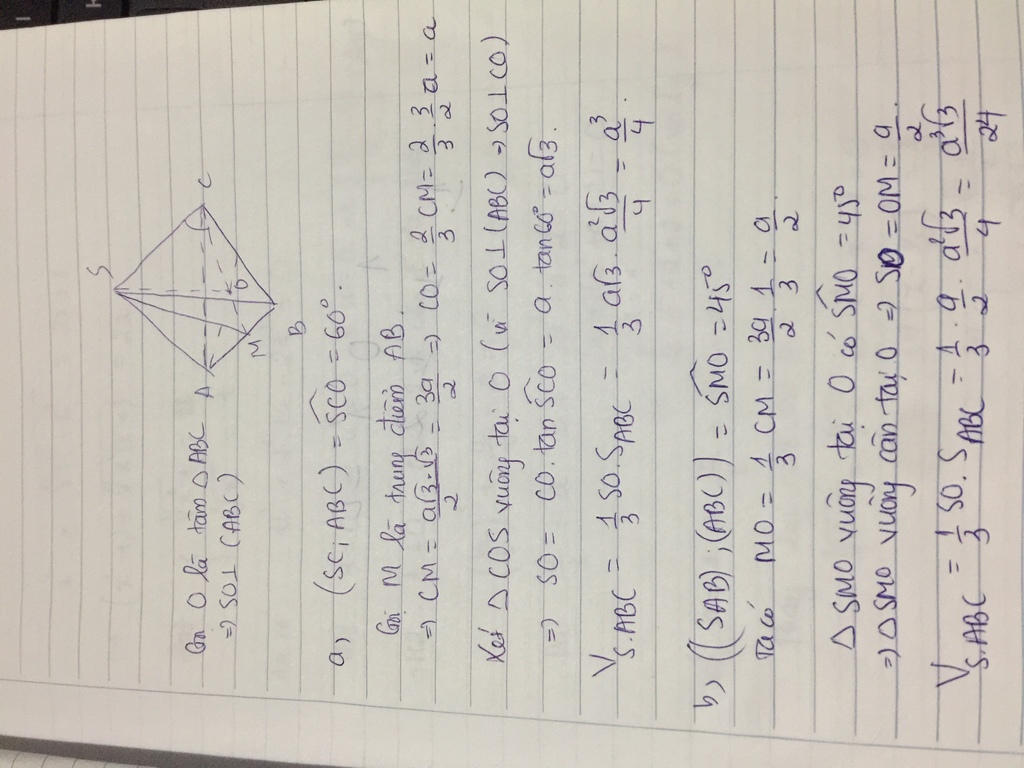 S
Gọi O là tâm △ ABC
A
C
=> SO⊥ (ABC)
O
M
B
a, (SC; ABC) = \widehat{SCO} = 60°.
Gọi M là trung điểm AB.
=> CM = \frac{a√3.√3}{2} = \frac{3a}{2} => CO = \frac{2}{3} CM = \frac{2}{3} . \frac{3}{2} a = a
Xét △ COS vuông tại O (vì SO⊥(ABC) → SO⊥CO)
=> SO = CO.tan \widehat{SCO} = a. tan60° = a√3.
V_{S.ABC} = \frac{1}{3} SO. S_{ABC} = \frac{1}{3} a√3. \frac{a^2√3}{4} = \frac{a^3}{4}.
b, ((SAB) ; (ABC)) = \widehat{SMO} = 45°
Ta có MO = \frac{1}{3} CM = \frac{3a}{2} . \frac{1}{3} = \frac{a}{2}.
△ SMO vuông tại O có \widehat{SMO} = 45°
=> △ SMO vuông cân tại O => SO = OM = \frac{a}{2}.
V_{S.ABC} = \frac{1}{3} SO. S_{ABC} = \frac{1}{3} . \frac{a}{2} . \frac{a^2√3}{4} = \frac{a^3√3}{24}